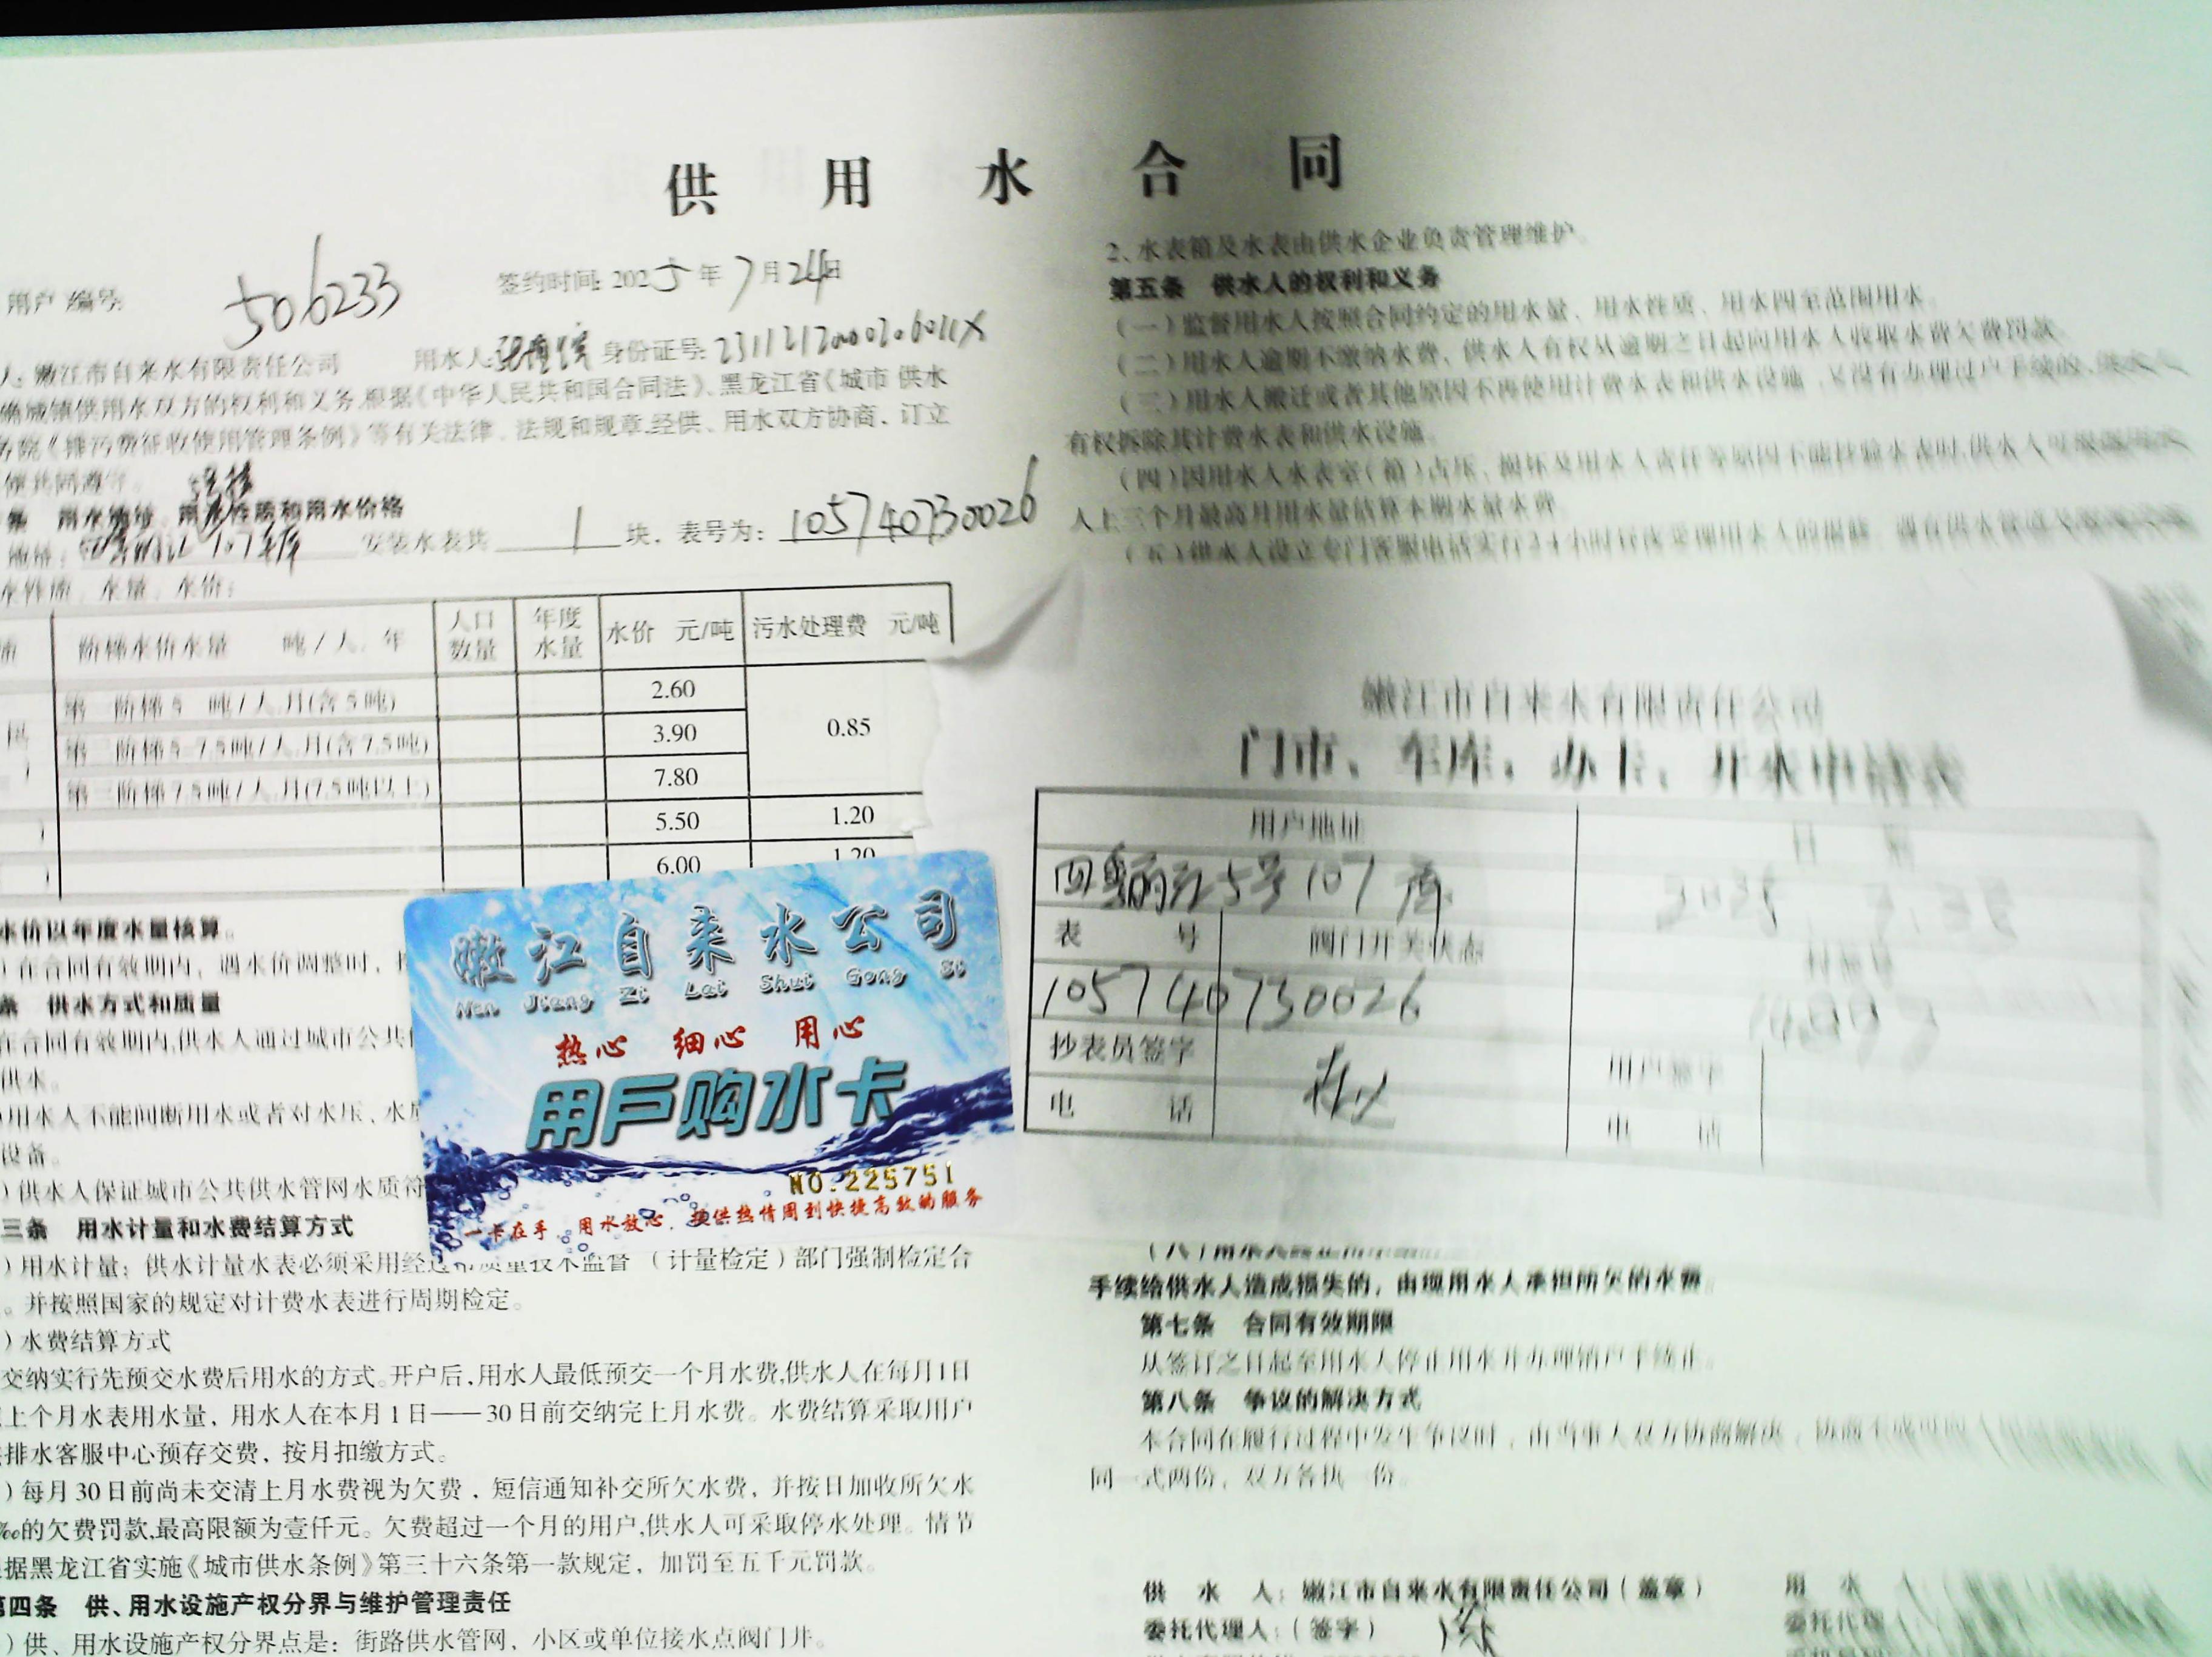 供用水合同
用户编号: 506233
签约时间: 2025年7月24日
人: 嫩江市自来水有限责任公司 用水人: 身份证号:
确城镇供用水双方的权利和义务,根据《中华人民共和国合同法》、黑龙江省《城市供水
务院《排污费征收使用管理条例》等有关法律、法规和规章,经供、用水双方协商，订立
便共同遵守。
条 用水地址、用水性质和用水价格
107车库 安装水表共 1 块，表号为: 105740730026
水性质、水量、水价:
阶梯水价水量 吨/人、年 人口数量 年度水量 水价 元/吨 污水处理费 元/吨
第一阶梯5 吨/人.月(含5吨) 2.60 0.85
第二阶梯5-7.5吨/人.月(含7.5吨) 3.90
第三阶梯7.5吨/人.月(7.5吨以上) 7.80
5.50 1.20
6.00 1.20
水价以年度水量核算。
)在合同有效期内，遇水价调整时，
条 供水方式和质量
在合同有效期内,供水人通过城市公共
供水。
)用水人不能间断用水或者对水压、水
设备。
)供水人保证城市公共供水管网水质符
三条 用水计量和水费结算方式
)用水计量: 供水计量水表必须采用经 质量技术监督（计量检定）部门强制检定合
。并按照国家的规定对计费水表进行周期检定。
)水费结算方式
交纳实行先预交水费后用水的方式。开户后,用水人最低预交一个月水费,供水人在每月1日
上个月水表用水量，用水人在本月1日——30日前交纳完上月水费。水费结算采取用户
排水客服中心预存交费，按月扣缴方式。
)每月30日前尚未交清上月水费视为欠费，短信通知补交所欠水费，并按日加收所欠水
‰的欠费罚款,最高限额为壹仟元。欠费超过一个月的用户,供水人可采取停水处理。情节
据黑龙江省实施《城市供水条例》第三十六条第一款规定，加罚至五千元罚款。
第四条 供、用水设施产权分界与维护管理责任
)供、用水设施产权分界点是: 街路供水管网、小区或单位接水点阀门井。
嫩江自来水公司
Nen Jiang Zi Lai Shui Gong Si
热心 细心 用心
用户购水卡
NO.225751
一卡在手，用水放心，提供热情周到快捷高效的服务
2、水表箱及水表由供水企业负责管理维护。
第五条 供水人的权利和义务
(一)监督用水人按照合同约定的用水量、用水性质、用水四至范围用水。
(二)用水人逾期不缴纳水费，供水人有权从逾期之日起向用水人收取水费欠费罚款。
(三)用水人搬迁或者其他原因不再使用计费水表和供水设施，又没有办理过户手续的,供水人
有权拆除其计费水表和供水设施。
(四)因用水人水表室(箱)占压、损坏及用水人责任等原因不能抄验水表时,供水人可根据用水
人上三个月最高月用水量估算本期水量水费
(五)供水人设立专门客服电话实行24小时昼夜受理用水人的报修
嫩江市自来水有限责任公司
门市、车库、办卡、开水申请表
用户地址
5号107库
表号 阀门开关状态
105740730026
抄表员签字 用户签字
电话 电话
手续给供水人造成损失的，由现用水人承担所欠的水费
第七条 合同有效期限
从签订之日起至用水人停止用水并办理销户手续止。
第八条 争议的解决方式
本合同在履行过程中发生争议时，由当事人双方协商解决，协商不成可向
同一式两份，双方各执一份。
供水人: 嫩江市自来水有限责任公司（盖章） 用水
委托代理人:（签字） 委托代理